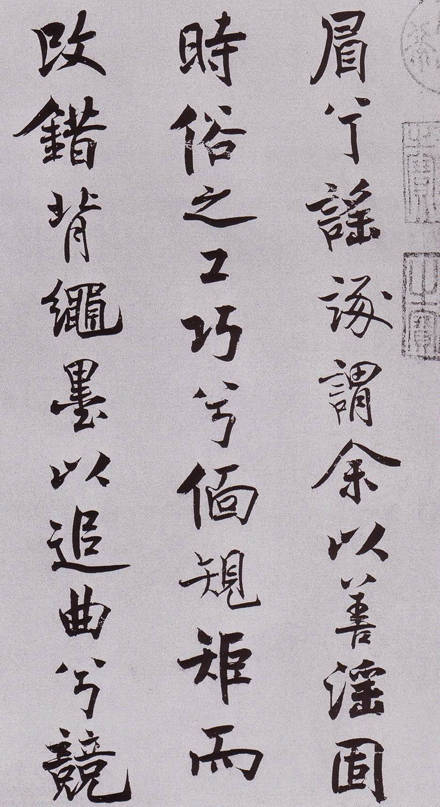 眉兮謠諑謂余以善淫固
時俗之工巧兮偭規矩而
改錯背繩墨以追曲兮競